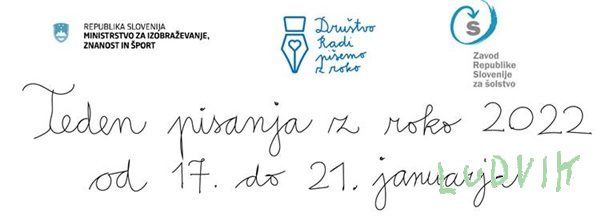 REPUBLIKA SLOVENIJA
MINISTRSTVO ZA IZOBRAŽEVANJE,
ZNANOST IN ŠPORT
Društvo
Radi
pišemo
z roko
Š
Zavod
Republike
Slovenije
za šolstvo
Teden pisanja z roko 2022
od 17. do 21. januarja
LUDVIK